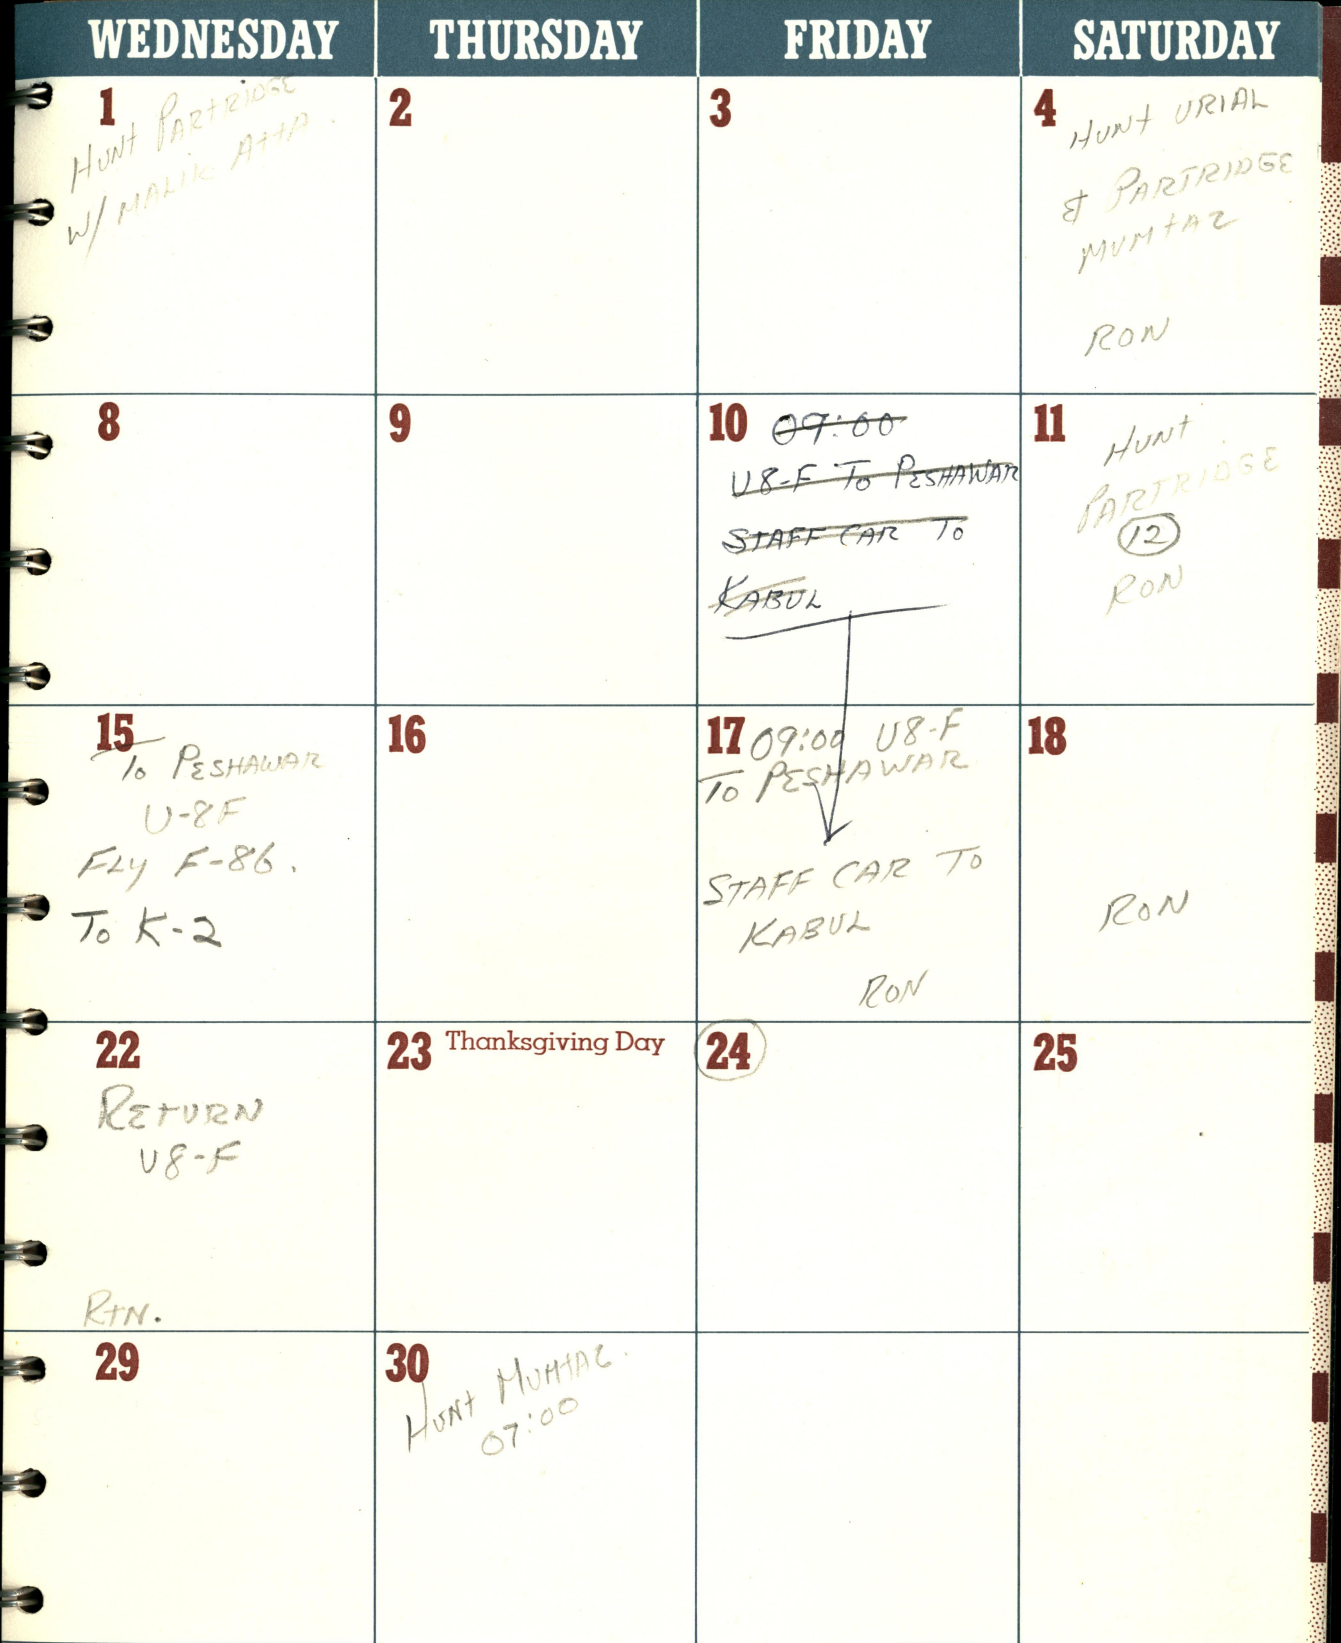 WEDNESDAY THURSDAY FRIDAY SATURDAY
1
HUNT PARTRIDGE
W/ MALIK ATTA.
2
3
4
HUNT URIAL
& PARTRIDGE
MUMTAZ
RON
8
9
10 09:00
U8-F TO PESHAWAR
STAFF CAR TO
KABUL
11
HUNT
PARTRIDGE
12
RON
15
TO PESHAWAR
U-8F
FLY F-86.
TO K-2
16
17 09:00 U8-F
TO PESHAWAR
STAFF CAR TO
KABUL
RON
18
RON
22
RETURN
U8-F
RTN.
23 Thanksgiving Day
24
25
29
30
HUNT MUMTAZ.
07:00